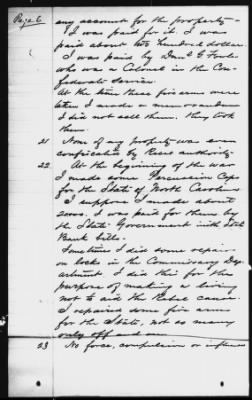 Page 6
any account for the property—
I was paid for it. I was
paid about two hundred dollars
I was paid by Danl G Fowle
who was a Colonel in the Con-
federate Service.
At the time these fire arms were
taken I made a memorandum
I did not sell them. they took
them.
21 None of my property was ever
confiscated by Rebel authority.
22 At the beginning of the war
I made some Percussion Caps
for the State of North Carolina
I suppose I made about
2000. I was paid for them by
the State Government with State
Bank bills.
Sometimes I did some repair-
on locks in the Commissary Dep
artment I did this for the
purpose of making a living
not to aid the Rebel cause.
I repaired some fire arms
for the State, not as many
only off and on
23 No force, compulsion or influence